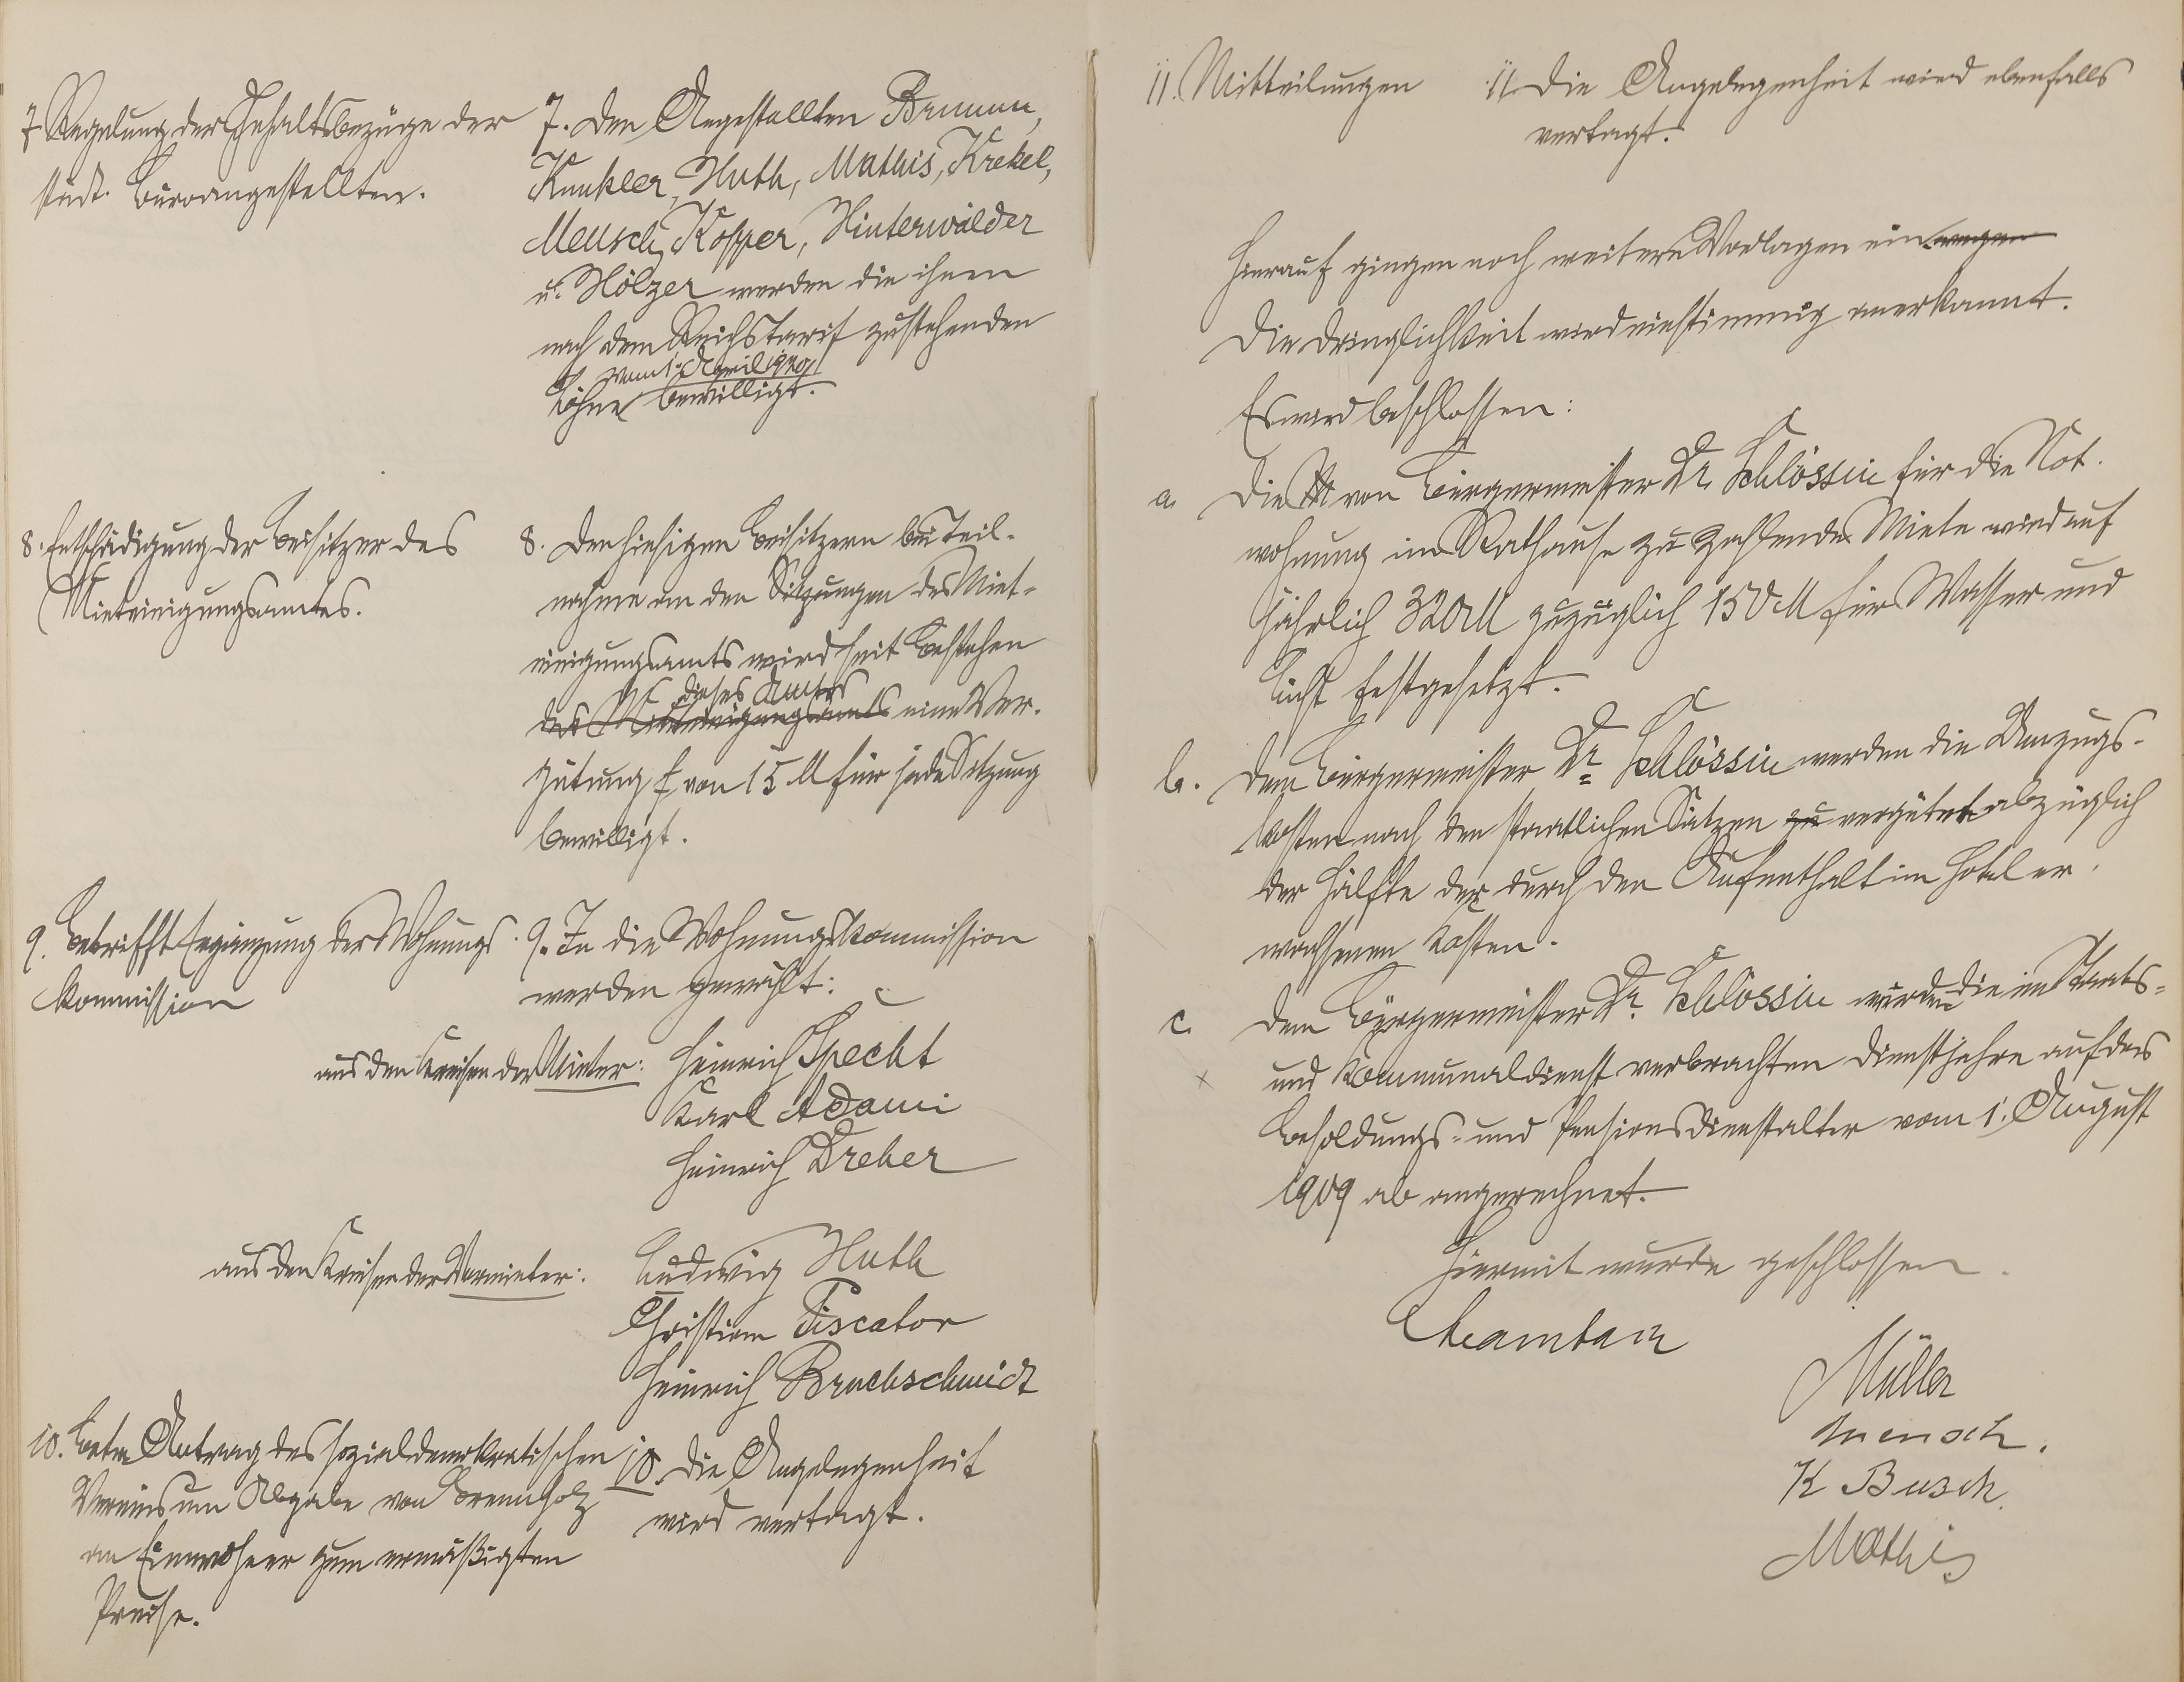 7 Regelung der Gehaltsbezüge der
städt. Büroangestellten.
7. Den Angestellten Brumm,
Kunkler, Huth, Mathis, Krekel,
Meusch, Kopper, Hinterwälder
u. Hölzer werden die ihnen
nach dem Reichstarif zustehenden
vom 1. April 1920
Löhne bewilligt.
8. Entschädigung der Beisitzer des
Mieteinigungsamtes.
8. Den hiesigen Beisitzern bei Teil-
nahme an den Sitzungen des Miet-
einigungsamts wird seit Bestehen
dieses Amtes
des Mieteinigungsamts eine Ver-
gütung von 15 M für jede Sitzung
bewilligt.
9. Betrifft Ergänzung der Wohnungs-
kommission
9. In die Wohnungskommission
werden gewählt:
aus den Kreisen der Mieter: Heinrich Specht
Karl Adami
Heinrich Dreher
aus den Kreisen der Vermieter: Ludwig Huth
Christian Piscator
Heinrich Bruchschmidt
10. Betr. Antrag des sozialdemokratischen
Vereins um Abgabe von Brennholz
an Einwohner zum ermäßigten
Preise.
10. Die Angelegenheit
wird vertagt.
11. Mitteilungen
11. Die Angelegenheit wird ebenfalls
vertagt.
Hierauf gingen noch weitere Vorlagen ein
Die Dringlichkeit wird einstimmig anerkannt.
Es wird beschlossen:
a. Die von Bürgermeister Dr. Schlössin für die Not-
wohnung im Rathause zu zahlende Miete wird auf
jährlich 320 M zuzüglich 150 M für Wasser und
Licht festgesetzt.
b. Dem Bürgermeister Dr. Schlössin werden die Umzugs-
kosten nach den staatlichen Sätzen zu vergütet abzüglich
der Hälfte der durch den Aufenthalt im Hotel er-
wachsenen Kosten.
c. Dem Bürgermeister Dr. Schlössin wurden die im Staats-
und Kommunaldienst verbrachten Dienstjahre auf das
Besoldungs- und Pensionsdienstalter vom 1. August
1909 ab angerechnet.
Hiermit wurde geschlossen.
Müller
Mensch.
K Busch.
Mathis